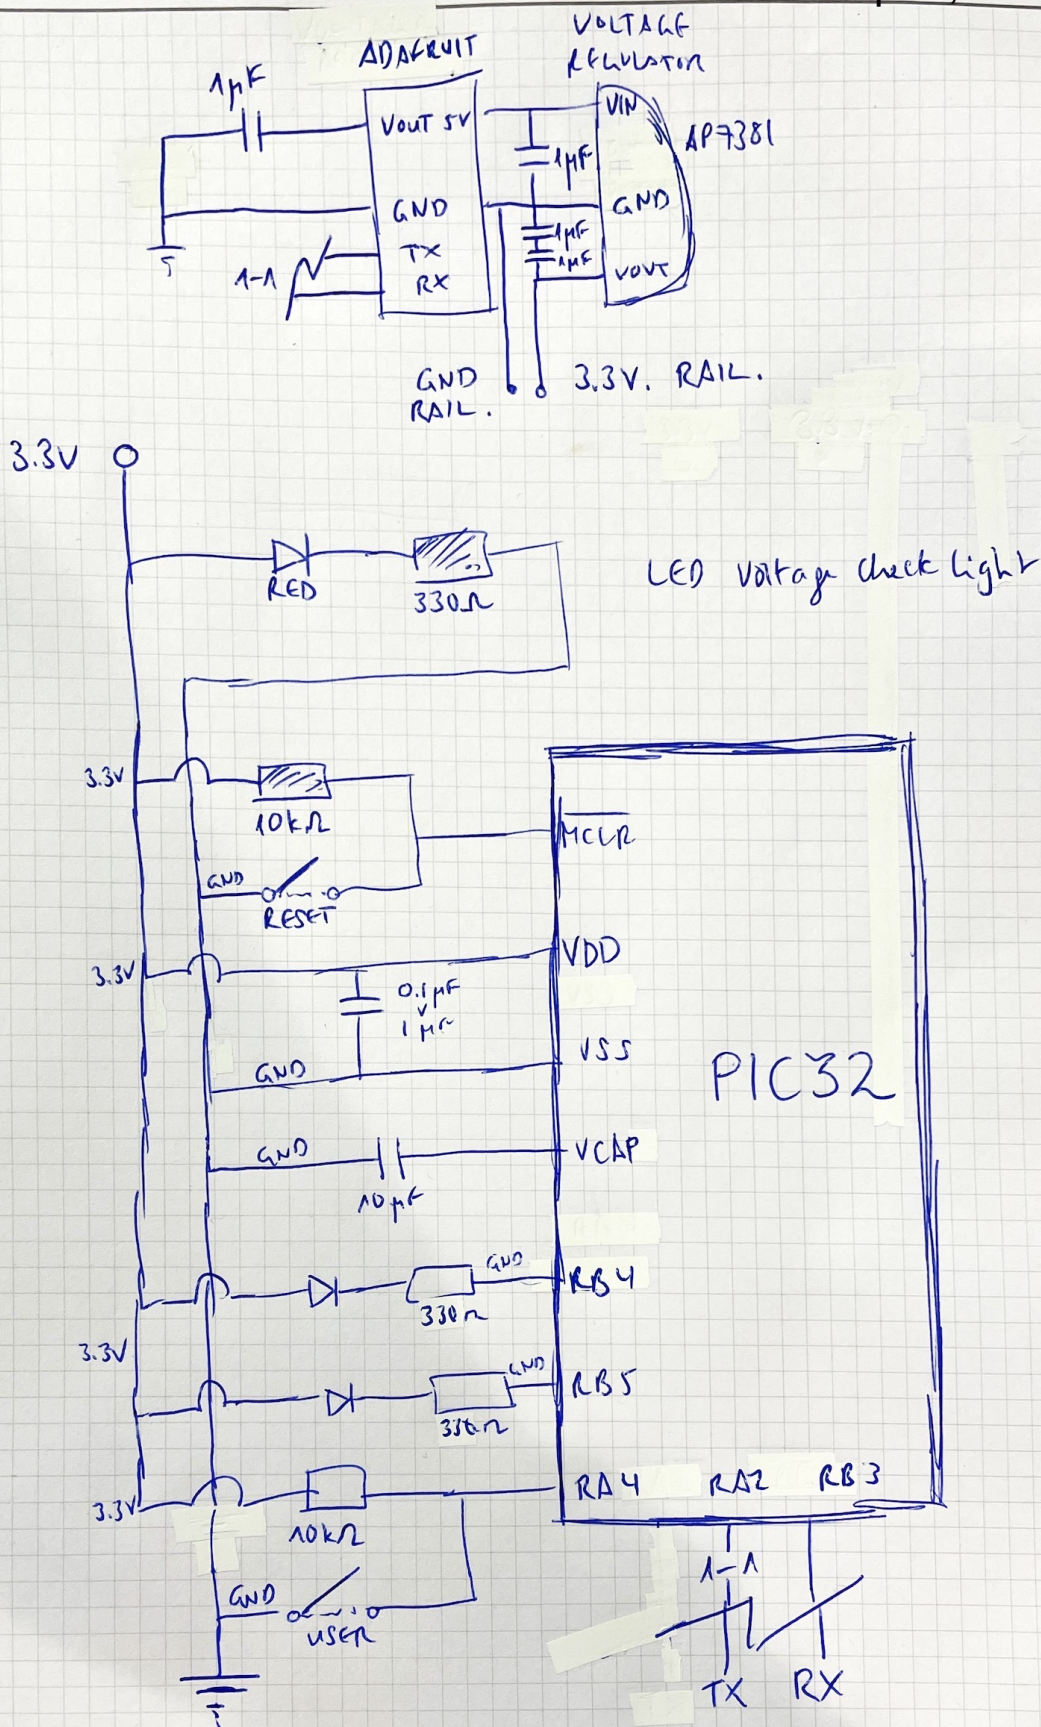 ADAFRUIT
VOLTAGE
REGULATOR
1µF
VOUT 5V
VIN
AP7381
1µF
GND
GND
1µF
1µF
TX
1-1
RX
VOUT
GND
RAIL.
3.3V. RAIL.
3.3V
RED
330Ω
LED Voltage check light
3.3V
10kΩ
MCLR
GND
RESET
3.3V
VDD
0.1µF
v
1µF
VSS
GND
PIC32
GND
VCAP
10µF
GND
RB4
330Ω
3.3V
GND
RB5
330Ω
3.3V
RA4 RA2 RB3
10kΩ
1-1
GND
USER
TX RX